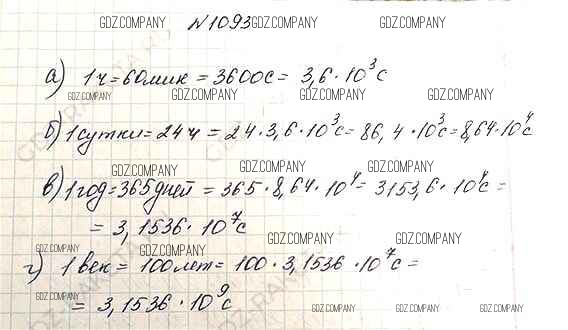 GDZ.COMPANY №1093 GDZ.COMPANY GDZ.COMPANY
а) 1ч=60мин = 3600с = 3,6·10³с
GDZ.COMPANY GDZ.COMPANY GDZ.COMPANY GDZ.COMPANY
б) 1сутки=24ч = 24·3,6·10³с=86,4·10³с=8,64·10⁴с
GDZ.COMPANY GDZ.COMPANY GDZ.COMPANY
в) 1год=365дней = 365·8,64·10⁴= 3153,6·10⁴с =
= 3,1536·10⁷с
GDZ.COMPANY GDZ.COMPANY GDZ.COMPANY GDZ.COMPANY
г) 1век = 100лет= 100·3,1536·10⁷с =
GDZ.COMPANY
= 3,1536·10⁹с
GDZ.COMPANY GDZ.COMPANY GDZ.COMPANY